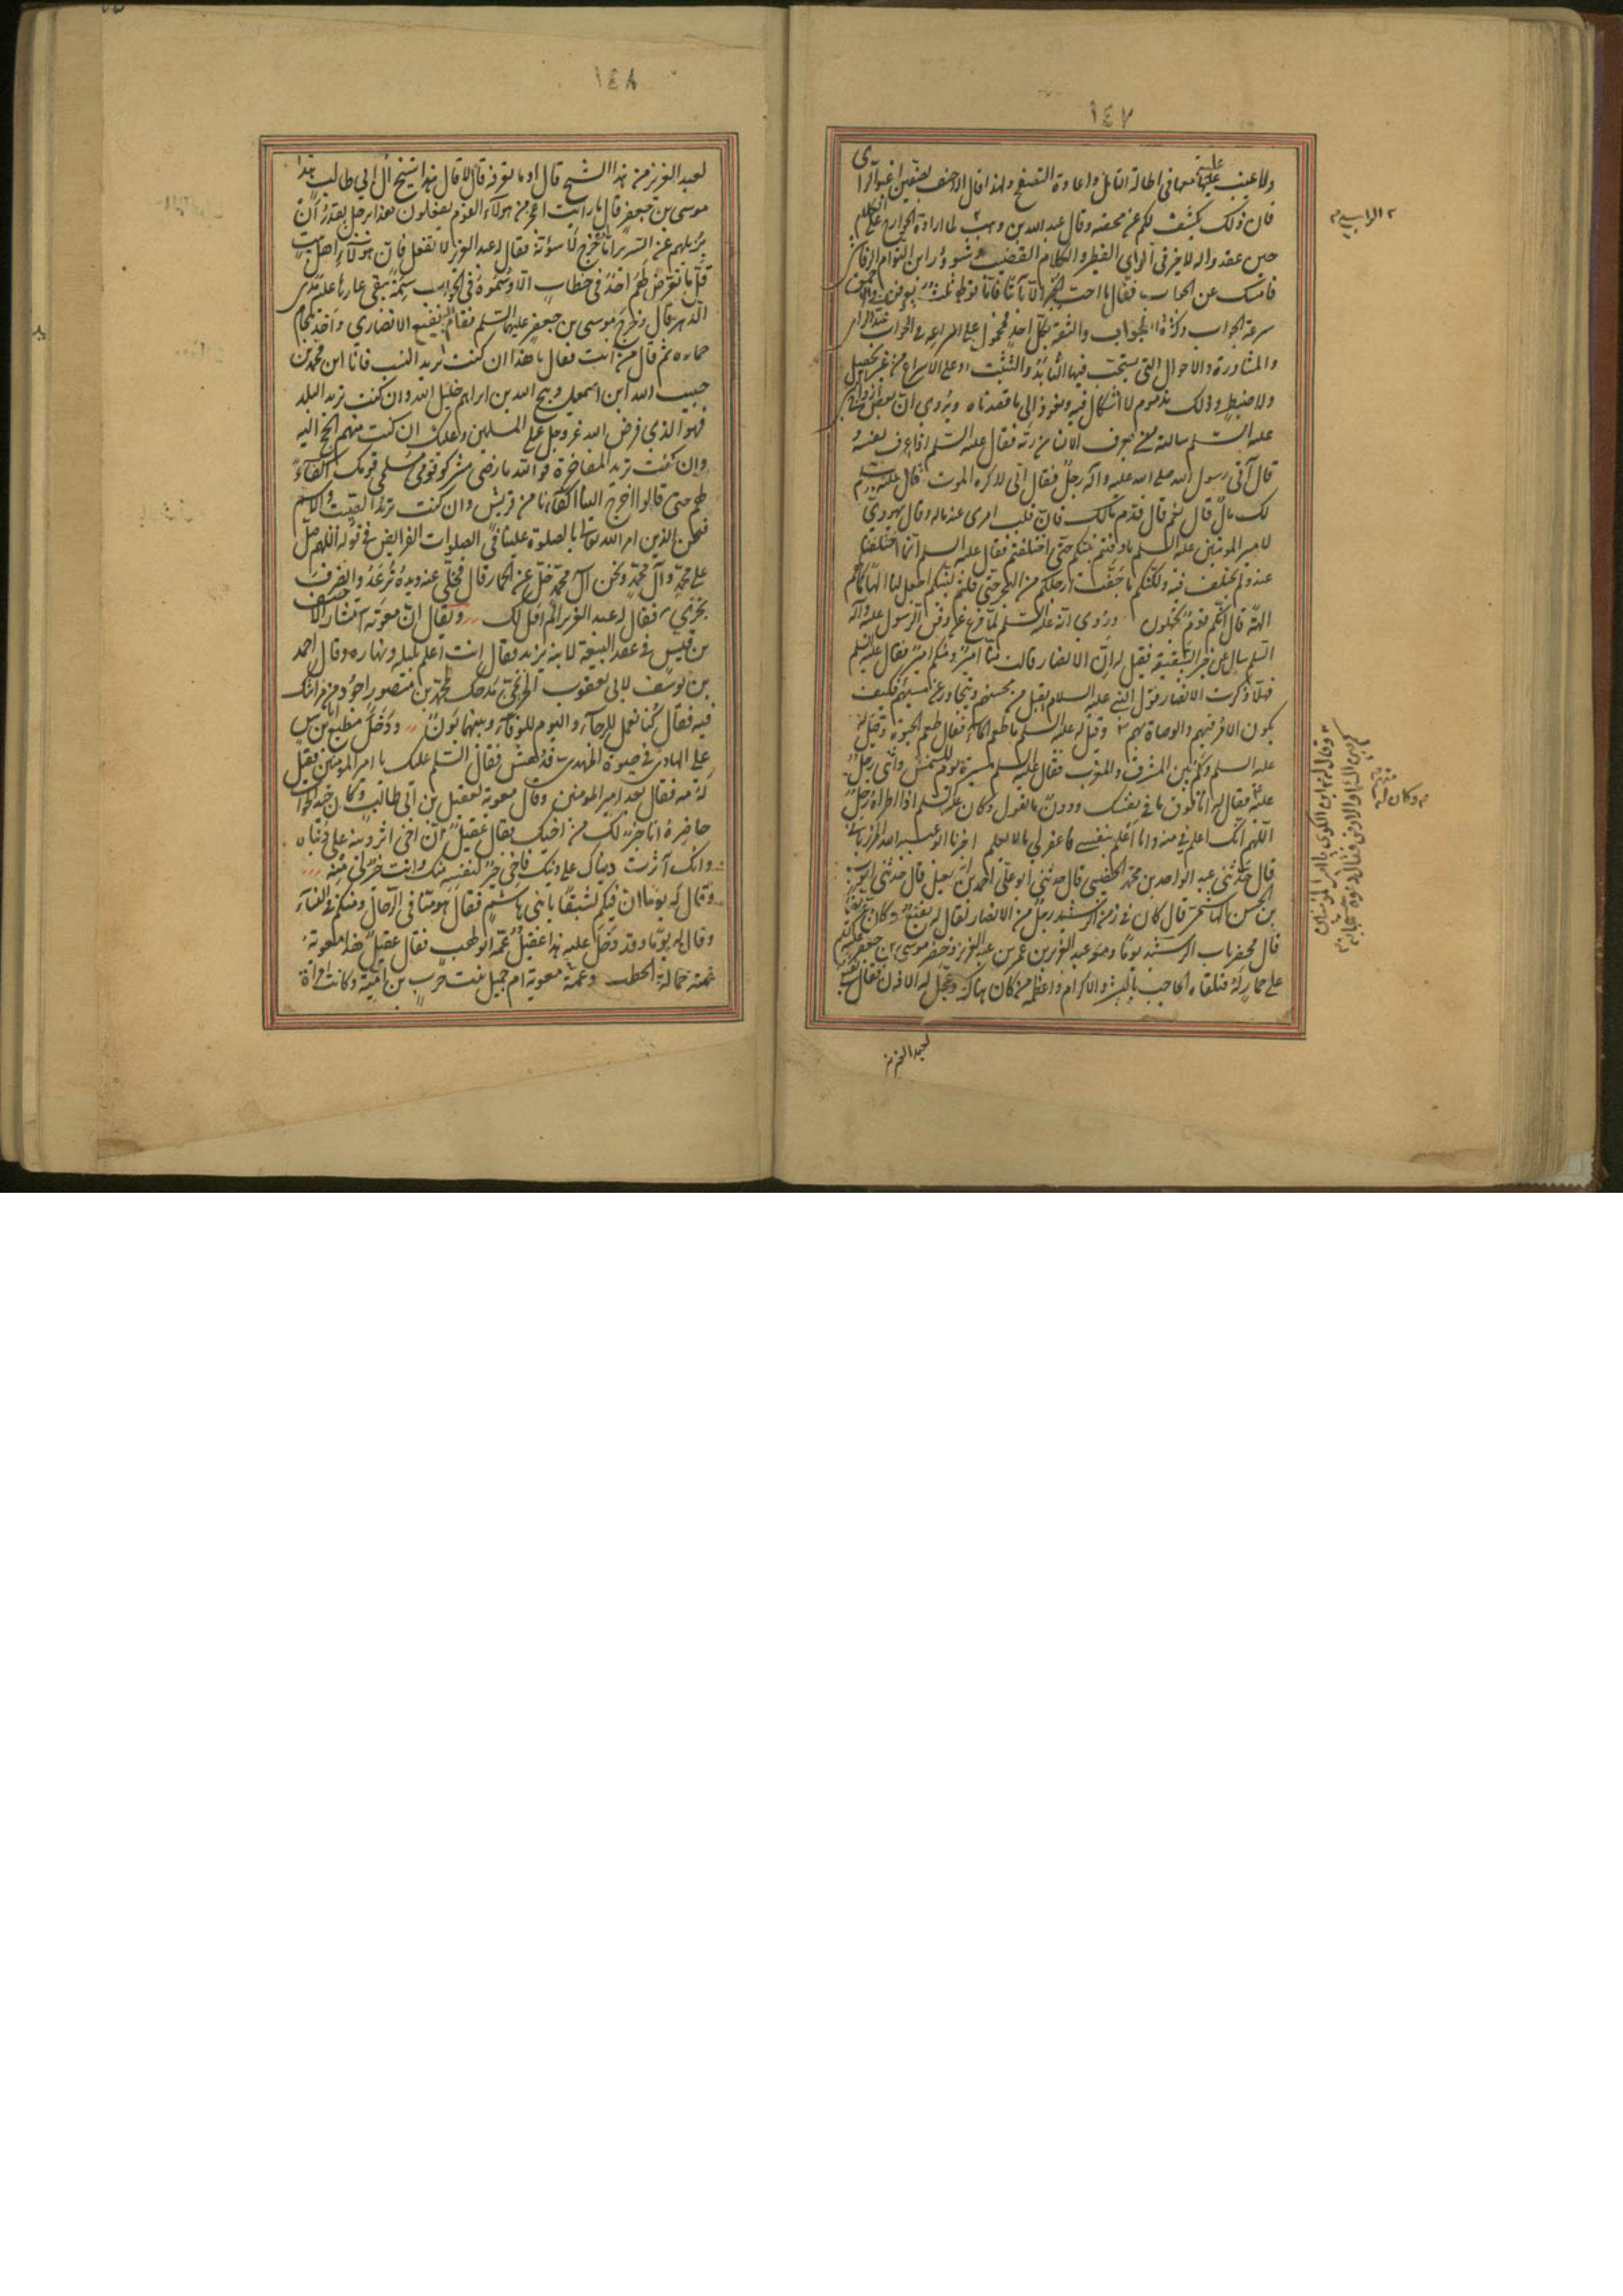 ١٤٧
ولا عيب عليهما في اطالة التأمل واعادة التصفح ولهذا قال الاحنف بصفين اغبوا الرأى
فان ذلك يكشف لكم عن محضه وقال عبد الله بن وهب لما اراده الخوارج على الكلام
حين عقدوا له لا خير في الرأي الفطير والكلام القضيب
فامسك عن الجواب فقال ما احب الخبز الا بائتا
سرعة الجواب والثقة بكل احد محمول على
والمشاورة والاحوال التي يستحب فيها التأيد والتثبت او على الاسراع من غير تحصيل
ولا ضبط وذلك مذموم لا اشكال فيه ونعود الى ما قصدناه ويروى ان بعض ازواج النبي
عليه السلم سألته متى يعرف الانسان ربه فقال عليه السلم اذا عرف نفسه و
قال أتى رسول الله صلى الله عليه وآله رجل فقال انى اكره الموت قال عليه السلم
لك مال قال نعم قال قدم مالك فان قلب امرئ عند ماله وقال يهودي
لامير المؤمنين عليه السلم ما دفنتم نبيكم حتى اختلفتم فقال عليه السلم انما اختلفنا
عنه ولم نختلف فيه ولكنكم ما جفت ارجلكم من البحر حتى قلتم لنبيكم اجعل لنا الها كما لهم
الهة قال انكم قوم تجهلون وروى انه عليه السلم لما فرغ من دفن الرسول عليه وآله
السلم سأل عن خبر السقيفة فقيل له ان الانصار قالت منا امير ومنكم امير فقال عليه السلم
فهلا ذكرت الانصار قول النبي عليه السلام يقبل من محسنهم ويتجاوز عن مسيئهم فكيف
يكون الامر فيهم والوصاة بهم وقيل له عليه السلم ما طعم الماء فقال طعم الحيوة وقيل له
عليه السلم وكم بين المشرق والمغرب فقال عليه السلم مسيرة يوم للشمس واثنى رجل
عليه فقال له انا دون ما في نفسك ودون ما تقول وكان عليه السلم اذا اطراه رجل
اللهم انك اعلم بي منه وانا اعلم بنفسي فاغفر لي ما لا يعلم اخبرنا ابو عبيد الله المرزباني
قال حدثني عبد الواحد بن محمد الخصيبي قال حدثني ابو علي احمد بن اسمعيل قال حدثني ايوب
بن الحسن الهاشمي قال كان في زمن الرشيد رجل من الانصار يقال له نفيع وكان عريضا
قال فحضر باب الرشيد يوما ومعه عبد العزيز بن عمر بن عبد العزيز وحضر موسى بن جعفر عليه السلم
على حمار له فتلقاه الحاجب بالبشر والاكرام واعظمه من كان هناك وعجل له الاذن فقال نفيع
لعبد العزيز
الراسبي
وقال له ابن الكوى يا امير المؤمنين
كم بين السماء والارض فقال دعوة مستجابة
وكان له
١٤٨
لعبد العزيز من هذا الشيخ قال او ما تعرفه قال لا قال هذا شيخ آل ابي طالب هذا
موسى بن جعفر قال ما رأيت اعجز من هولاء القوم يفعلون هذا برجل يقدر ان
يزيلهم عن السرير اما لئن خرج لاسوءنه فقال له عبد العزيز لا تفعل فان هولاء اهل بيت
قل ما تعرض لهم احد في خطاب الا وسموه في الجواب سمة يبقى عارها عليه مدى
الدهر قال وخرج موسى بن جعفر عليهما السلم فقام اليه نفيع الانصاري واخذ بلجام
حماره ثم قال من انت فقال يا هذا ان كنت تريد النسب فانا ابن محمد
حبيب الله ابن اسمعيل ذبيح الله بن ابراهيم خليل الله وان كنت تريد البلد
فهو الذي فرض الله عز وجل على المسلمين وعليك ان كنت منهم الحج اليه
وان كنت تريد المفاخرة فوالله ما رضى مشركو قومي مسلمى قومك اكفاء
لهم حتى قالوا اخرج الينا اكفاءنا من قريش وان كنت تريد الصيت والاسم
فنحن الذين امر الله تعالى بالصلوة علينا في الصلوات الفرايض في قوله اللهم صل
على محمد وآل محمد ونحن آل محمد خل عن الحمار قال فخلى عنه ويده ترعد وانصرف
بخزي فقال له عبد العزيز الم اقل لك ويقال ان معوية استشار الاحنف
بن قيس في عقد البيعة لابنه يزيد فقال انت اعلم بليله ونهاره وقال احمد
بن يوسف لابي يعقوب الخريمي مدحك لمحمد بن منصور اجود من مراثيك
فيه فقال كنا نعمل للرجاء واليوم للوفاء وبينهما بون ودخل مطيع بن اياس
على الهادى في حيوة المهدي فدهش فقال السلم عليك يا امير المؤمنين فقيل
له مه فقال بعد امير المؤمنين وقال معوية لعقيل بن ابي طالب وكان جيد الجواب
حاضره انا خير لك من اخيك فقال عقيل ان اخى اثر دينه على دنياه
وانك آثرت دنياك على دينك فاخى خير لنفسه منك وانت خير لي منه
وقال له يوما ان فيكم لشبقا يا بنى هاشم فقال هو منا في الرجال ومنكم في النساء
وقال له يوما وقد دخل عليه هذا عقيل عمه ابو لهب فقال عقيل هذا معوية
عمته حمالة الحطب وعمة معوية ام جميل بنت حرب بن امية وكانت امرأة